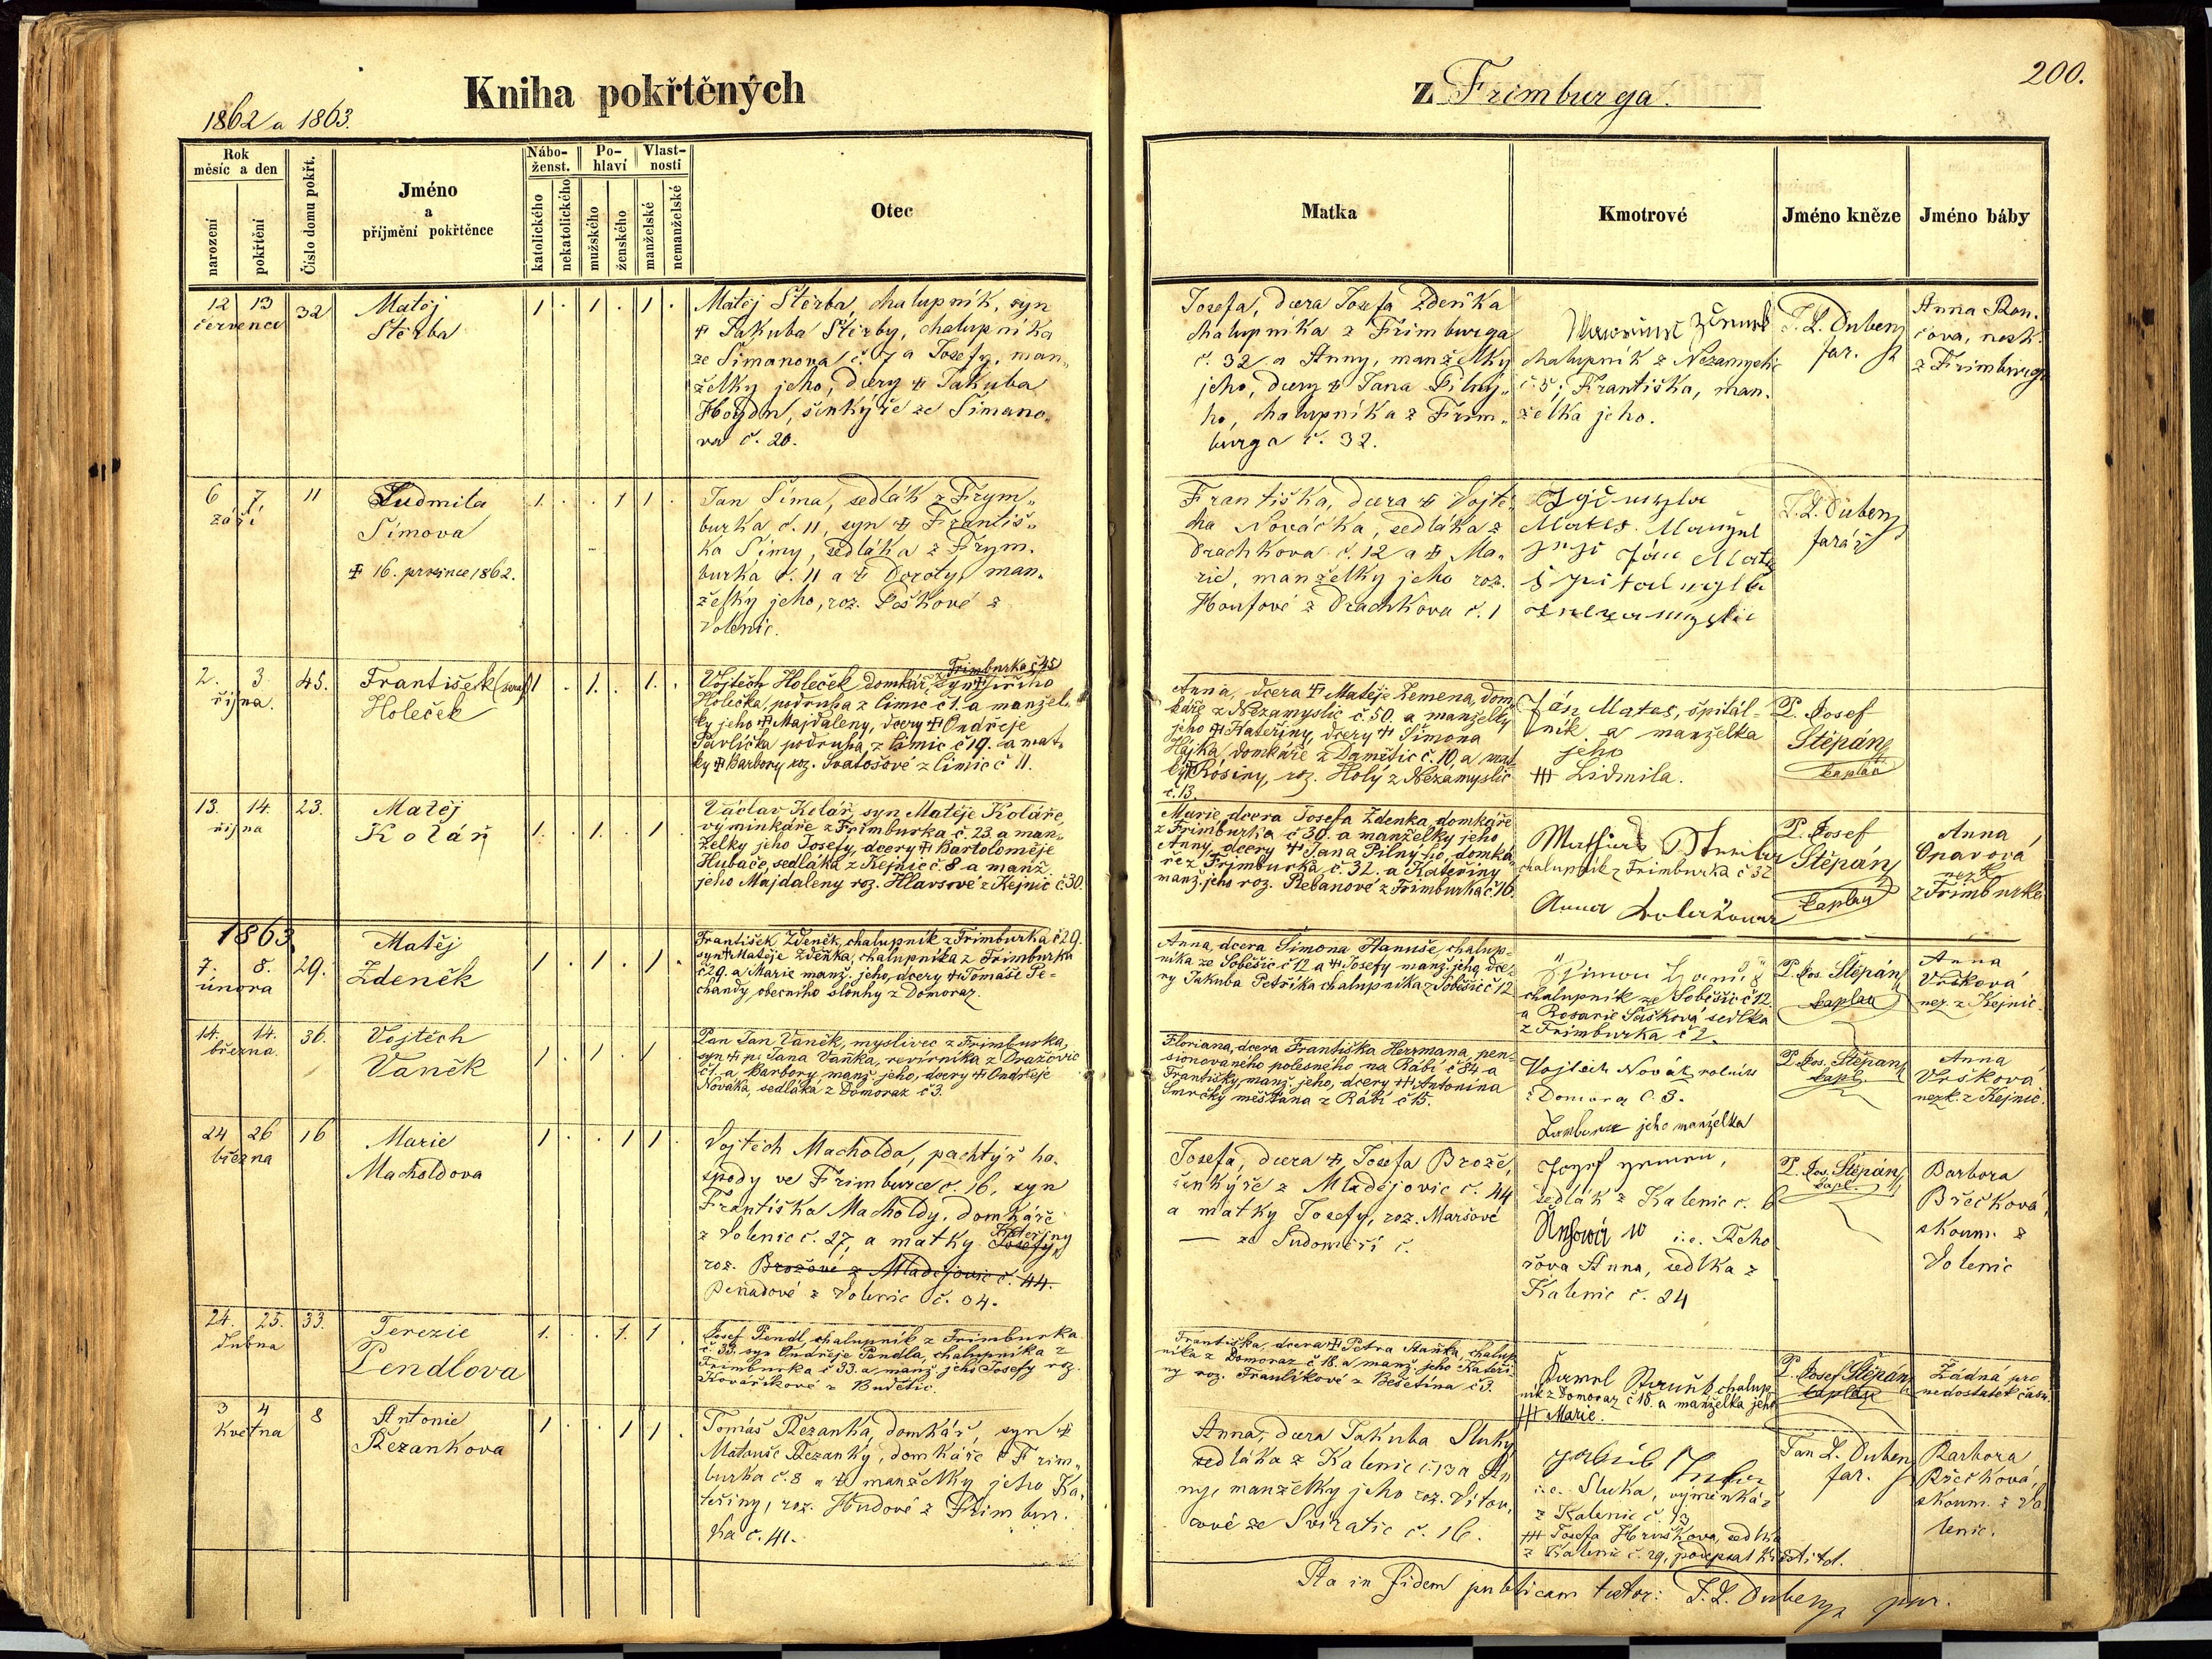 1862 a 1863.
Kniha pokřtěných
z Frimburga.
200.
Rok
měsíc a den
narození
pokřtění
Číslo domu pokřt.
Jméno
a
příjmění pokřtěnce
Nábo-
ženst.
katolického
nekatolického
Po-
hlaví
mužského
ženského
Vlast-
nosti
manželské
nemanželské
Otec
Matka
Kmotrové
Jméno kněze
Jméno báby
12 13 32
července
Matěj
Štěrba
1 . 1 . 1 .
Matěj Štěrba, chalupník, syn
‡ Jakuba Štěrby, chalupníka
ze Šimanova č. 7 a Josefy, man-
želky jeho, dcery ‡ Jakuba
šenkýře ze Šimano-
va č. 20.
Josefa, dcera Josefa Zdeňka
chalupníka z Frimburga
č. 32 a Anny, manželky
jeho, dcery ‡ Jana Pilný-
ho, chalupníka z Frim-
burga č. 32.
chalupník z Nezamyslic
č. 5; Františka, man-
želka jeho.
J. L. Dubenz
far.
Anna Ron-
čova, nezk.
z Frimburga
6 7 11
září
Ludmila
Šímova
‡ 16. prosince 1862.
1 . . 1 1 .
Jan Šíma, sedlák z Frym-
burka č. 11, syn ‡ Františ-
ka Šímy, sedláka z Frym-
burka č. 11 a ‡ Doroty, man-
želky jeho, roz. Paškové z
Volenic.
Františka, dcera ‡ Vojtě-
cha Nováčka, sedláka z
Drachkova č. 12 a ‡ Ma-
rie, manželky jeho roz.
Houfové z Drachkova č. 1
Jan Mates
J. L. Dubenz
farář
2. 3. 45.
října.
František
Holeček
1 . 1. . 1. .
z Frimburka č 45
Vojtěch Holeček domkář, syn ‡ Jiřího
Holečka, podruha z Limic č 1. a manžel-
ky jeho ‡ Majdaleny, dcery ‡ Ondřeje
Pavlíčka podruha, z Limic č 19. a mat-
ky ‡ Barbory roz. Svatošové z Limic č 11.
Anna, dcera ‡ Matěje Zemena, dom-
káře z Nezamyslic č. 50. a manželky
jeho ‡ Kateřiny, dcery ‡ Šimona
Hájka, domkáře z Damětic č. 10, a mat-
ky ‡ Rosiny, roz. Holý z Nezamyslic
č. 13.
Ján Mates, špitál-
ník a manželka
jeho
‡‡‡ Lidmila.
P. Josef
Štěpán
kaplan
13. 14. 23.
října
Matěj
Kolář
1. . 1. . 1 .
Václav Kolář, syn Matěje Koláře,
výminkáře z Frimburka č. 23. a man-
želky jeho Josefy, dcery ‡ Bartoloměje
Hubače, sedláka z Kejnic č. 8 a manž.
jeho Majdaleny roz. Hlavsové z Kejnic č. 30.
Marie, dcera Josefa Zdenka, domkáře
z Frimburka č 30. a manželky jeho
Anny, dcery ‡ Jana Pilného, domká-
ře z Frimburka č. 32. a Kateřiny
manž. jeho roz. Rebanové z Frimburka č. 16.
chalupník z Frimburka č 32
Anna
P. Josef
Štěpán
kaplan
Anna
Opavová
nezk.
z Frimburka
1863.
7. 8. 29.
února
Matěj
Zdeněk
1 . 1 . 1 .
František Zdeněk, chalupník z Frimburka č 29.
syn ‡ Matěje Zdeňka, chalupníka z Frimburka
č 29. a Marie manž. jeho, dcery ‡ Tomáše Pe-
chandy obecního slouhy z Domoraz.
Anna, dcera Šimona Hanuše, chalup-
níka ze Soběšic č 12 a ‡ Josefy manž. jeho, dce-
ry Jakuba Petříka chalupníka z Soběšic č 12
chalupník ze Soběšic č 12
a Rosarie Šašková sedlka
z Frimburka č 2.
P. Jos. Štěpán
kaplan
Anna
Vršková
nez. z Kejnic
14. 14. 36.
března.
Vojtěch
Vaněk
1 . 1 . 1 .
Pan Jan Vaněk, myslivec z Frimburka,
syn ‡ p. Jana Vaňka, revírníka z Dražovic
č 1. a Barbory manž. jeho, dcery ‡ Ondřeje
Nováka, sedláka z Domoraz č 3.
Floriana, dcera Františka Herzmana, pen-
sionovaného polesného na Rábí č 84 a
Františky, manž. jeho, dcery ‡‡ Antonína
Smrčky měšťana z Rábí č 15.
Vojtěch Novák rolník
z Domoraz č. 3.
jeho manželka
P. Jos. Štěpán
kapl.
Anna
Vršková
nezk. z Kejnic.
24 26 16
března
Marie
Macholdova
1 . . 1 1 .
Vojtěch Macholda, pachtýř ho-
spody ve Frimburce č. 16, syn
Františka Macholdy, domkáře
z Volenic č. 27, a matky Josefy,
Kateřiny
roz. Brožové z Mladějovic č. 44.
z Volenic č. 04.
Josefa, dcera ‡, Josefa Brože,
šenkýře z Mladějovic č. 44
a matky Josefy, roz. Maršové
— ze Sudoměři č.
sedlák z Kalenic č. 6
i. e. Řeho-
řova Anna, sedlka z
Kalenic č. 24
P. Jos. Štěpán
kapl.
Barbora
Břečková,
zkoum. z
Volenic
24. 25. 33.
dubna
Terezie
Pendlova
1. . . 1. 1 .
Josef Pendl, chalupník z Frimburka
č. 33. syn Ondřeje Pendla, chalupníka z
Frimburka č 33. a manž. jeho Josefy roz.
Kovaříkové z Budětic.
Františka, dcera ‡ Petra Staňka, chalup-
níka z Domoraz č 18. a manž. jeho Kateři-
ny roz. Franlíkové z Bešetína č 3.
chalup-
ník z Domoraz č 18. a manželka jeho
‡‡‡ Marie.
P. Josef Štěpán
kaplan
Žádná pro
nedostatek času.
3 4 8
května
Antonie
Řezankova
1 . . 1 1 .
Tomáš Řezanka, domkář, syn ‡
Matouše Řezanky, domkáře z Frim-
burka č. 8 a ‡ manželky jeho Ka-
teřiny, roz. Hudové z Frimbur-
ka č. 41.
Anna, dcera Jakuba Sluky
sedláka z Kalenic č. 13 a An-
ny, manželky jeho roz. Vítov-
cové ze Sviratic č. 16.
i. e. Sluka, výminkář
z Kalenic č. 13
‡‡‡ Josefa Hrušková, sedlka
z Kalenic č. 29, podepsal
Jan L. Dubenz
far.
Barbora
Břečková,
zkoum. z Vo-
lenic.
Ita in fidem publicam testor: J. L. Dubenz par.